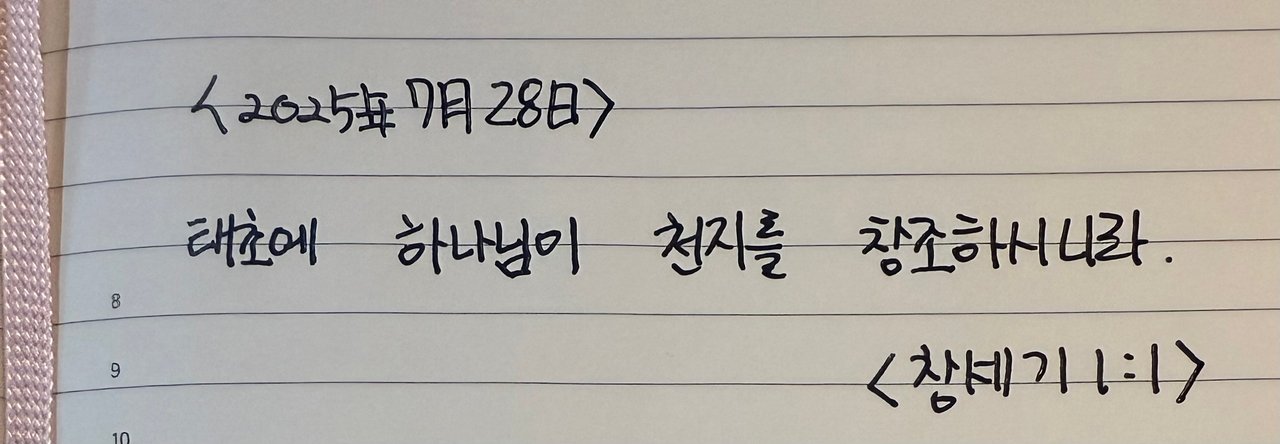 <2025年 7月 28日>
태초에 하나님이 천지를 창조하시니라.
8
<창세기 1:1>
9
10